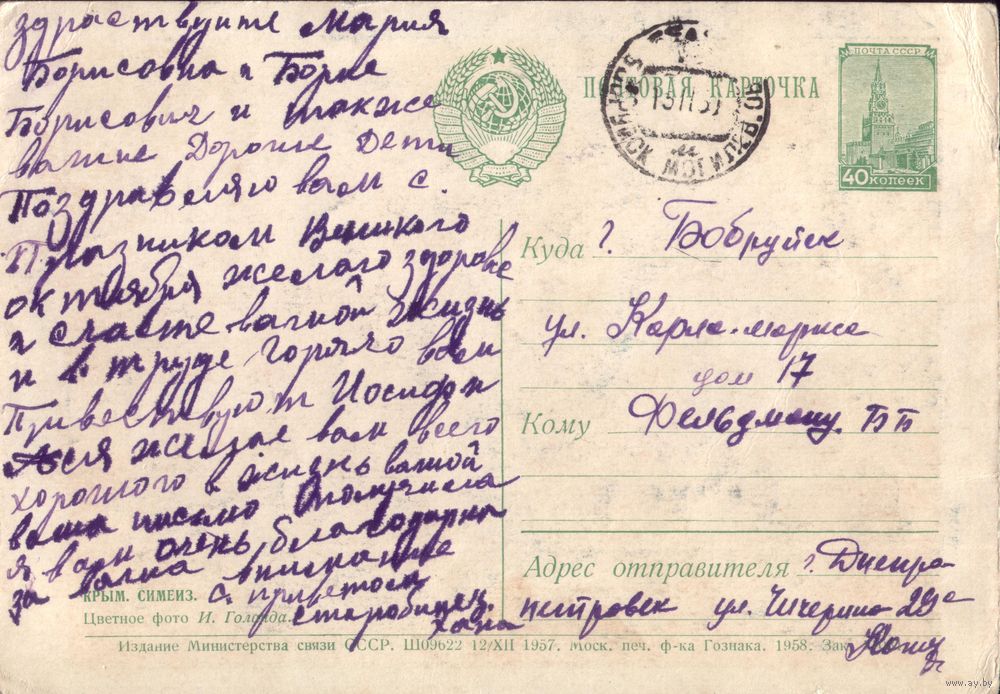 здраствуите Мария
Борисовна и Борис
Борисович и также
ваши Дорогие Дети
Поздравляю вам с.
Празником Великого
октября желаю здоровие
и счастье вашой жизнь
и в труде горячо вам
Привествуют Иосиф и
Ася желае вам всего
хорошого в жизнь вашой
ваша письмо я получила
я вам очень благодарна
за ваша внимание
с приветом
старобинец.
Хана
ПОЧТОВАЯ КАРТОЧКА
ПОЧТА СССР
40 копеек
БОБРУЙСК МОГИЛЕВ. ОБ
Куда г. Бобруйск
ул. Карла-маркса
дом 17
Кому Фельдману. ББ
Адрес отправителя г. Днепра-
петровск ул. Чичерина 29а
КРЫМ. СИМЕИЗ.
Цветное фото И. Голанда.
Издание Министерства связи СССР. Ш09622 12/XII 1957. Моск. печ. ф-ка Гознака. 1958. Зак.
www.ay.by